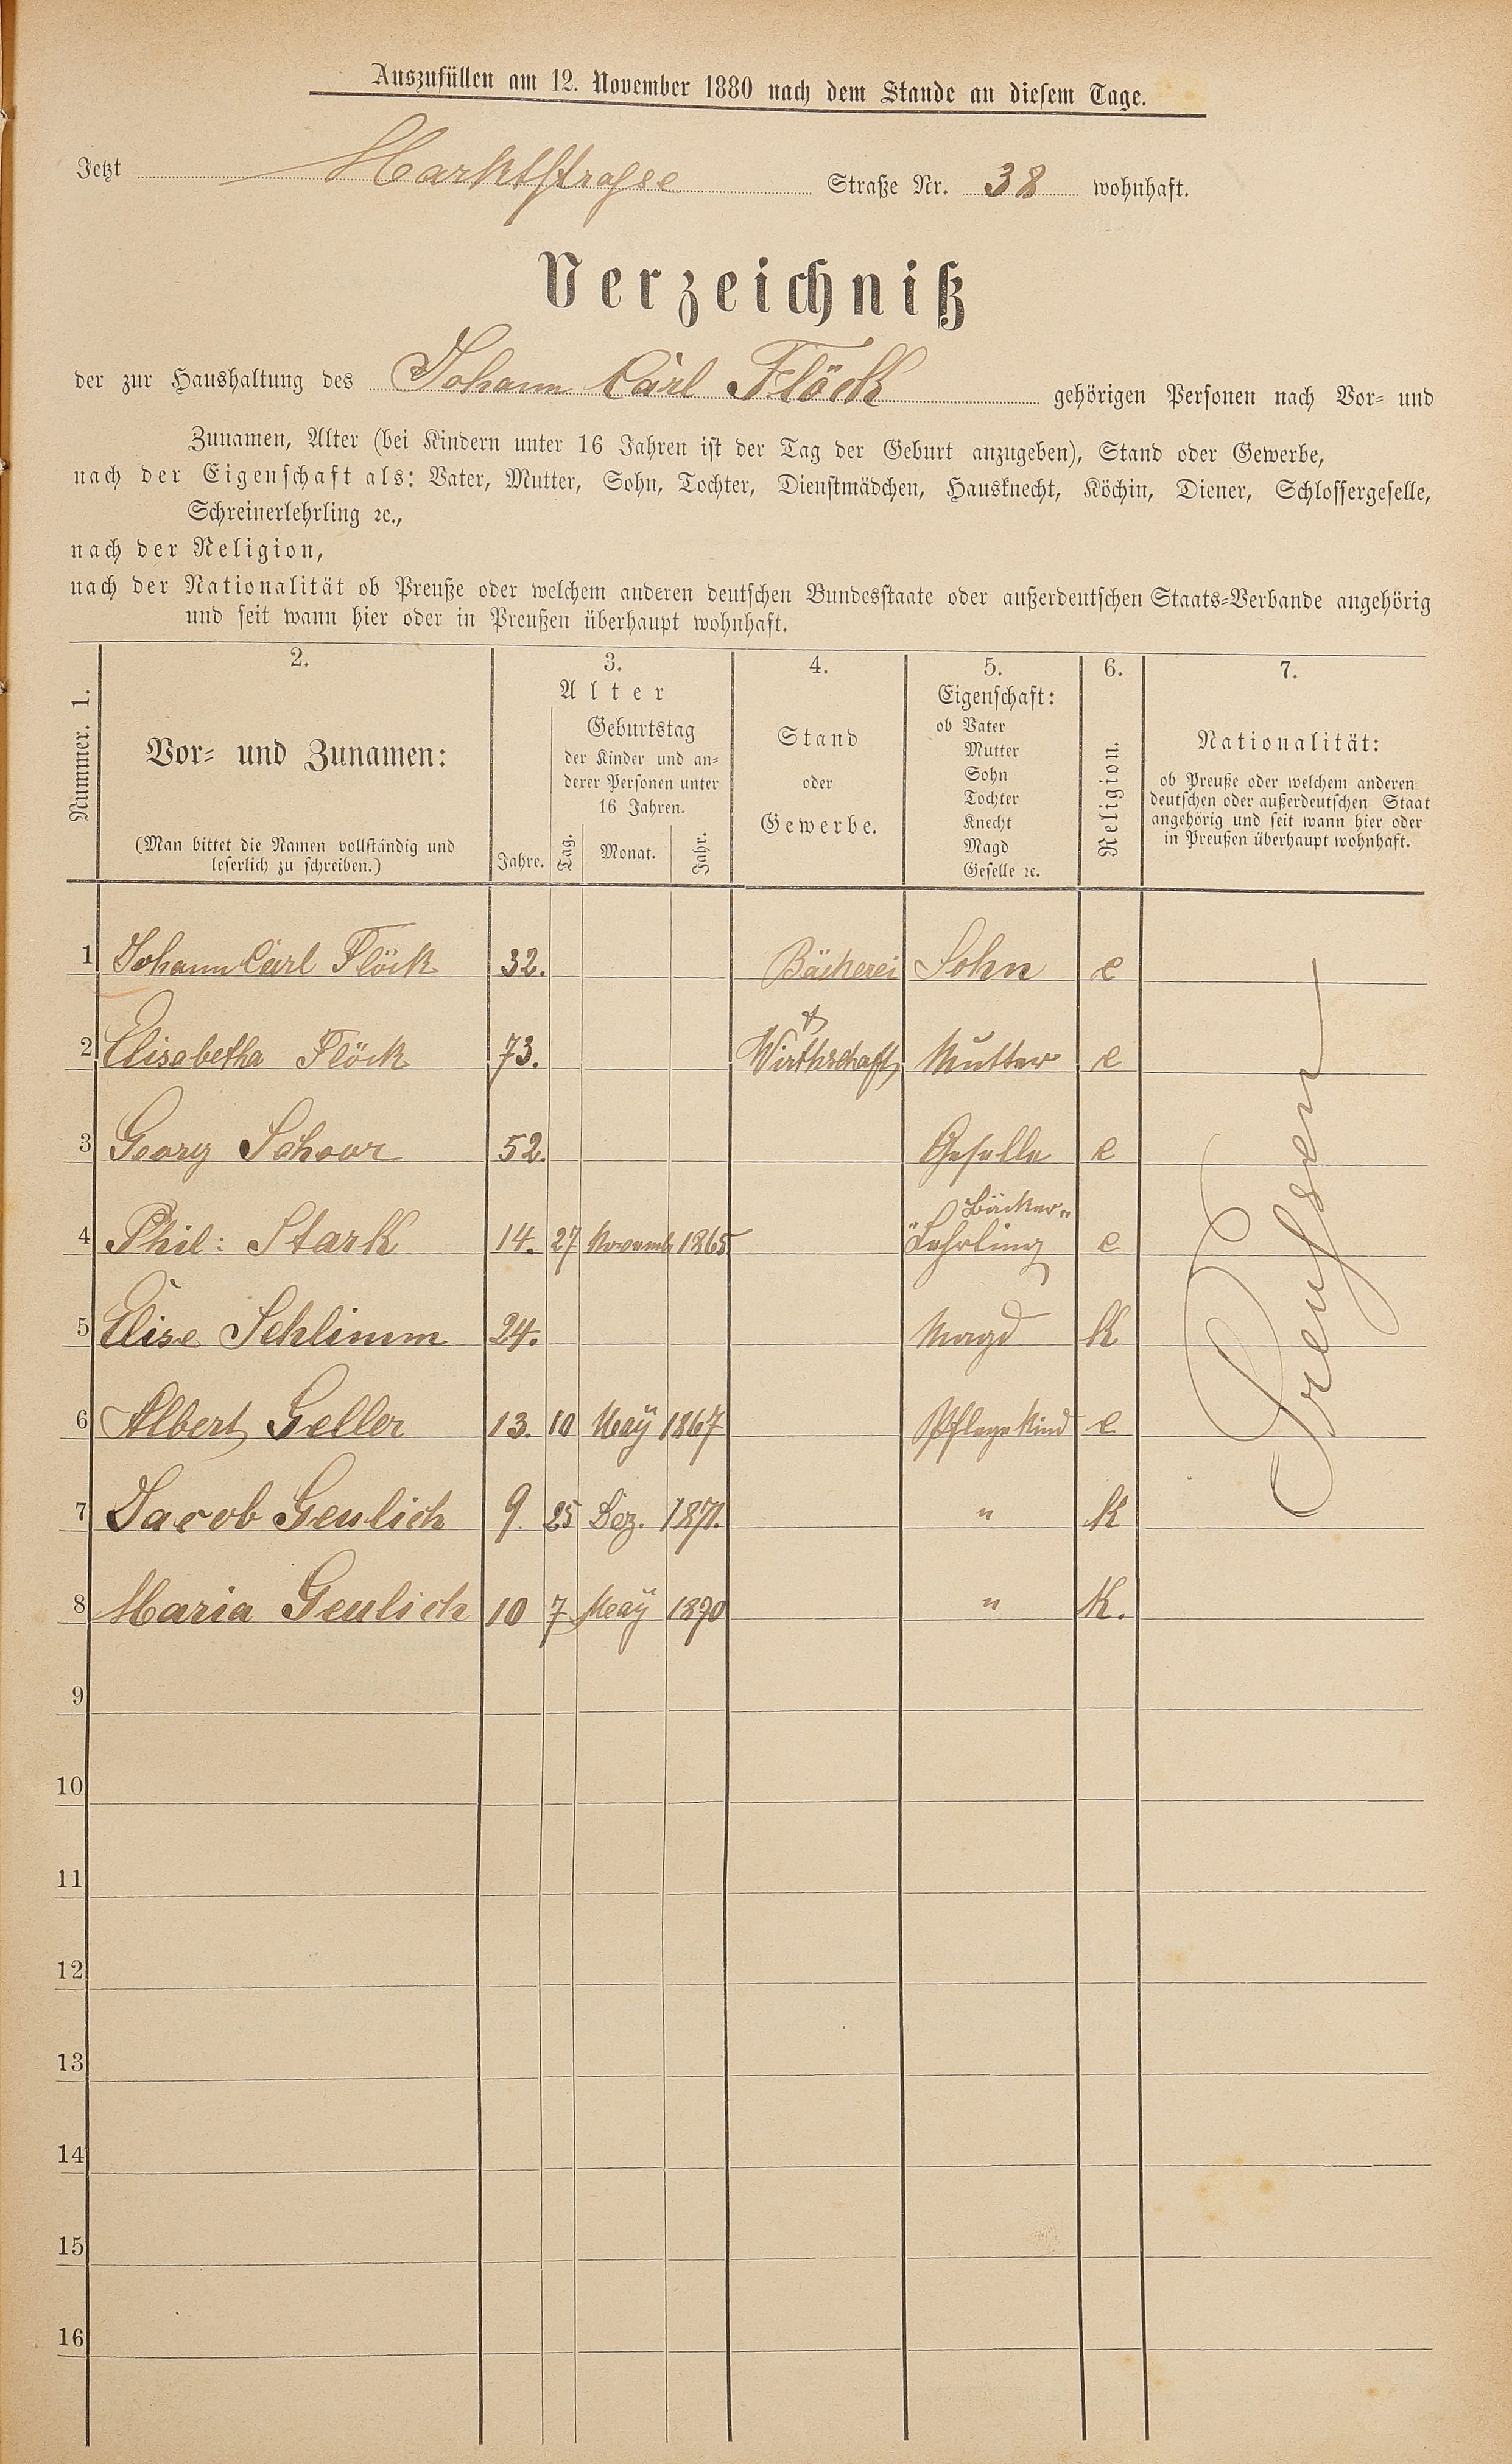 Auszufüllen am 12. November 1880 nach dem Stande an diesem Tage.
Jetzt Marktstraße Straße Nr. 38 wohnhaft.
Verzeichniß
der zur Haushaltung des Johann Carl Flöck gehörigen Personen nach Vor- und
Zunamen, Alter (bei Kindern unter 16 Jahren ist der Tag der Geburt anzugeben), Stand oder Gewerbe,
nach der Eigenschaft als: Vater, Mutter, Sohn, Tochter, Dienstmädchen, Hausknecht, Köchin, Diener, Schlossergeselle,
Schreinerlehrling ꝛc.,
nach der Religion,
nach der Nationalität ob Preuße oder welchem anderen deutschen Bundesstaate oder außerdeutschen Staats-Verbande angehörig
und seit wann hier oder in Preußen überhaupt wohnhaft.
Nummer. 1.
2.
Vor- und Zunamen:
(Man bittet die Namen vollständig und
leserlich zu schreiben.)
3.
Alter
Jahre.
Geburtstag
der Kinder und an-
derer Personen unter
16 Jahren.
Tag. Monat. Jahr.
4.
Stand
oder
Gewerbe.
5.
Eigenschaft:
ob Vater
Mutter
Sohn
Tochter
Knecht
Magd
Geselle ꝛc.
6.
Religion.
7.
Nationalität:
ob Preuße oder welchem anderen
deutschen oder außerdeutschen Staat
angehörig und seit wann hier oder
in Preußen überhaupt wohnhaft.
1 Johann Carl Flöck 32. Bäckerei Sohn e
2 Elisabetha Flöck 73. & Wirthschaft Mutter e
3 Georg Schoor 52. Geselle e
4 Phil: Stark 14. 27 Novemb 1865 Bäcker- Lehrling e
5 Elise Schlimm 24. Magd K
6 Albert Geller 13. 10 Maÿ 1867 Pflegekind e
7 Jacob Geulich 9. 25 Dez. 1871. " K
8 Maria Geulich 10 7 Maÿ 1870 " K.
Preußen
9
10
11
12
13
14
15
16